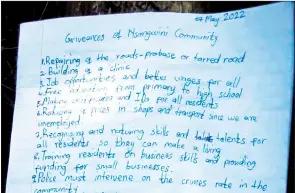 07 May 2022
Grievances of Nsingwini Community
1. Repairing of the roads - probase or tarred road
2. Building of a clinic
3. Job opportunities and better wages for all
4. Free education from primary to high school
5. Making voice process and IDs for all residents
6. Reducing of prices in shops and transport since we are
unemployed
7, Recognising and nurturing skills and talents for
all residents so they can make a living
8, Training residents on business skills and providing
funding for small businesses.
9, Police must intervene on the crimes rate in the
community